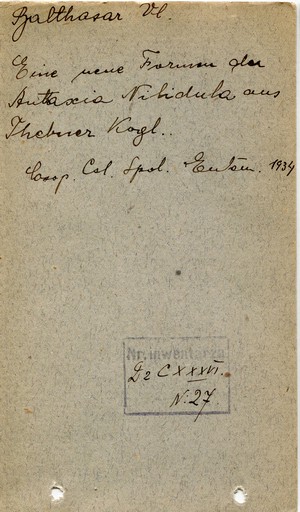 Balthasar Vl.
Eine neue Formen der
Anthaxia Nitidula aus
Thebner Kogl..
Csl. Spol. Entom. 1934
Nr. inwentarza
Dz C XXXVI.
N. 27.